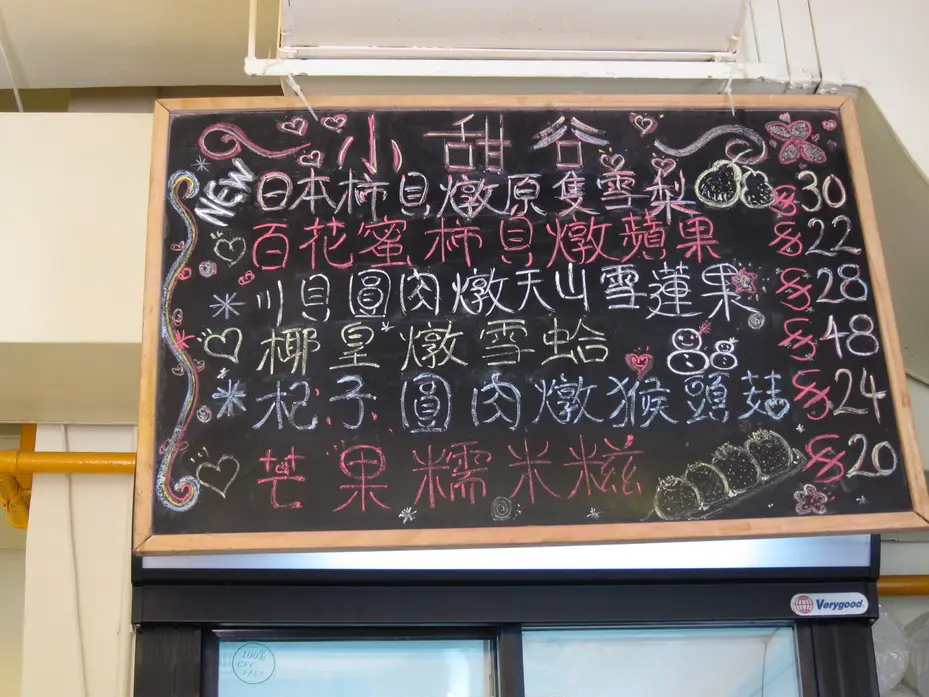 小甜谷
NEW 日本柿貝燉原隻雪梨 $30
百花蜜柿貝燉蘋果 $22
川貝圓肉燉天山雪蓮果 $28
椰皇燉雪蛤 $48
杞子圓肉燉猴頭菇 $24
芒果糯米糍 $20
Verygood
100%
CFC
FREE!